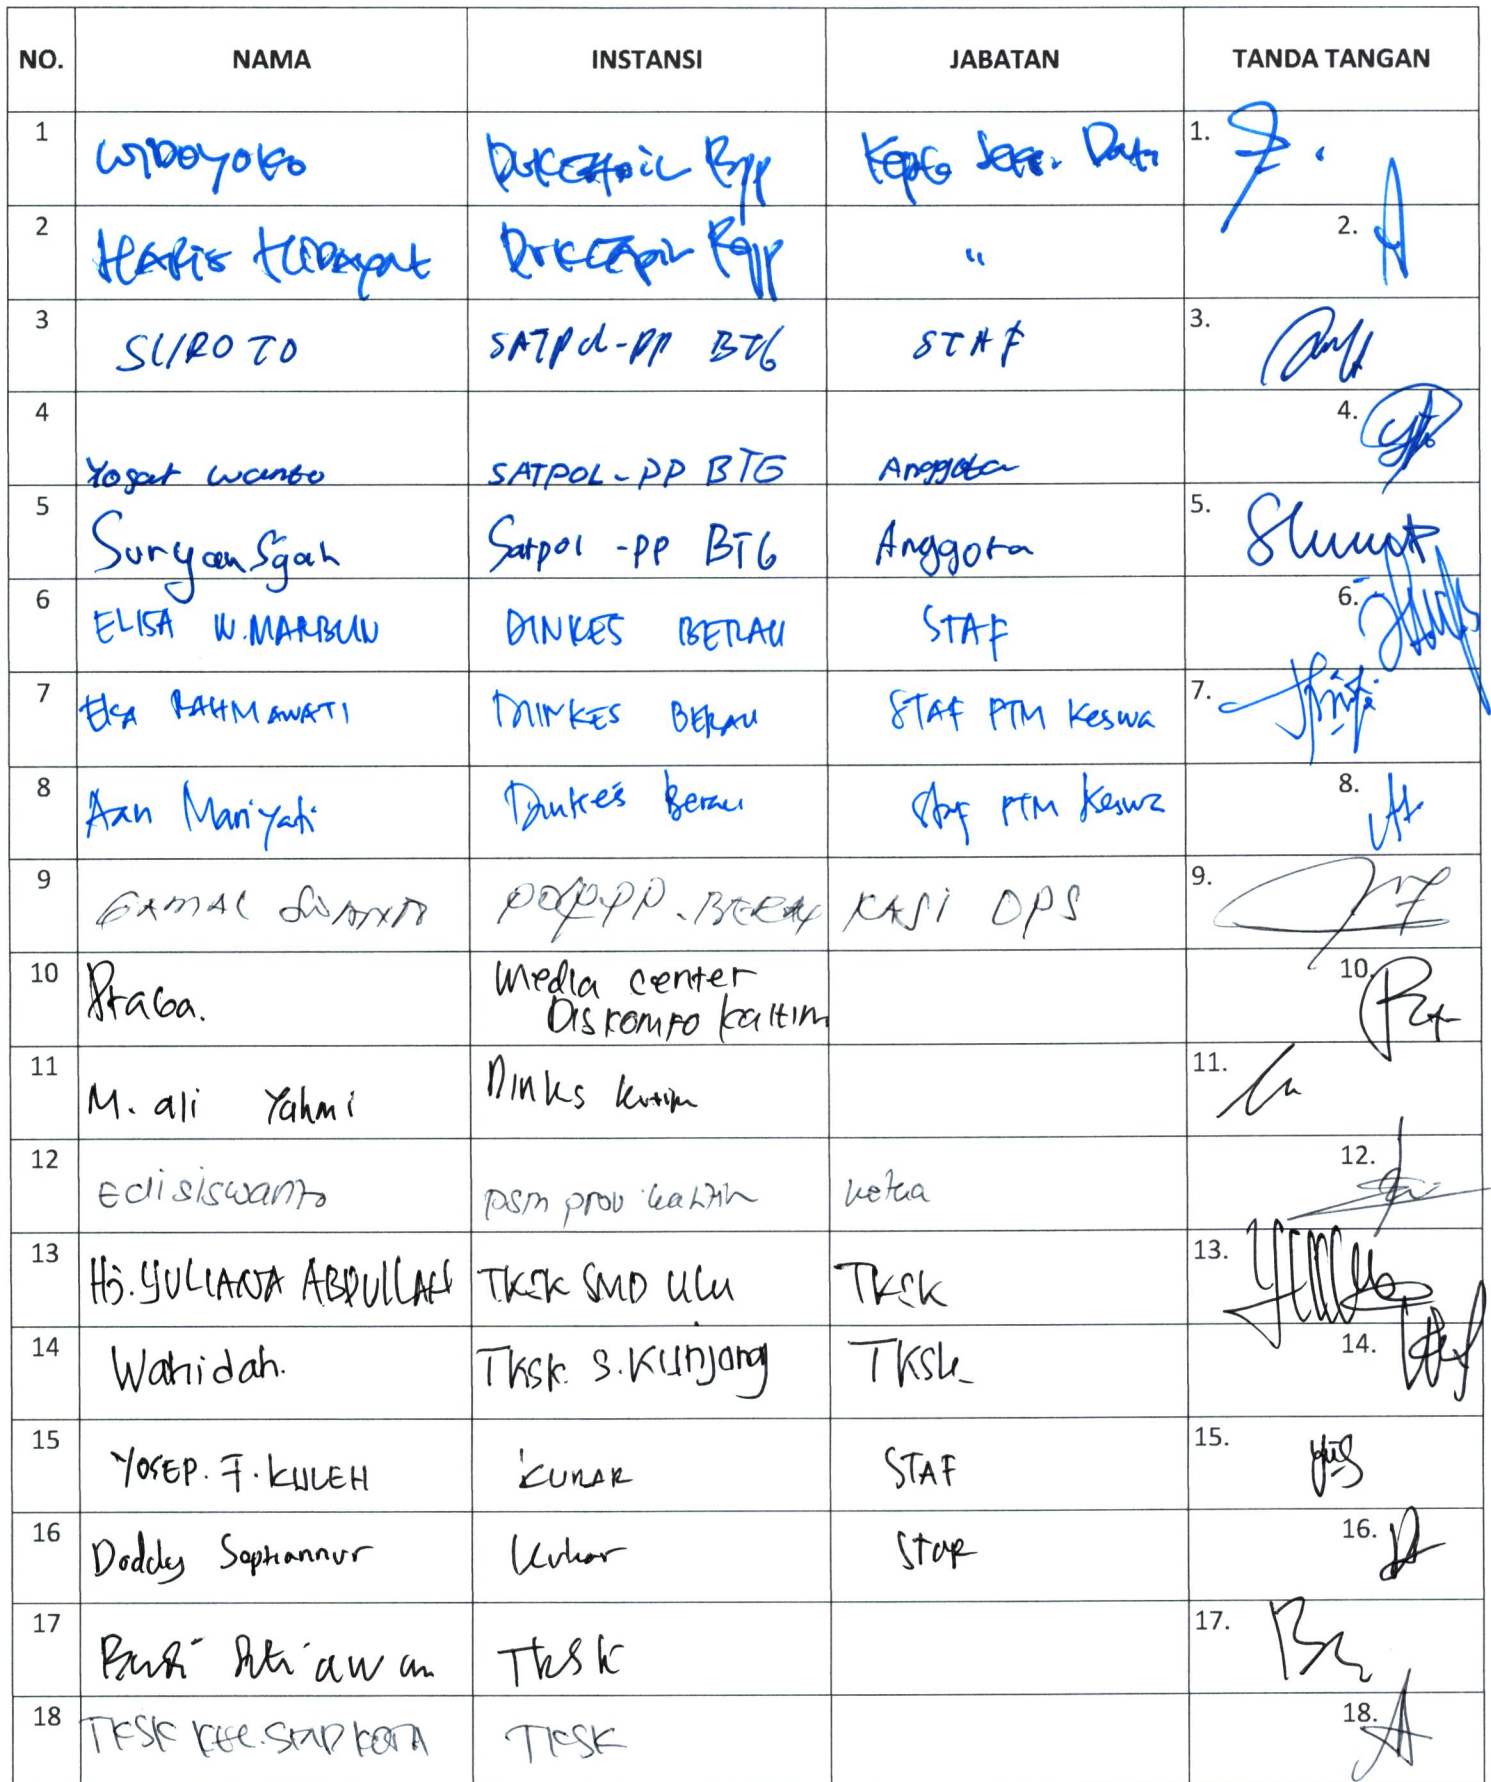 NO. NAMA INSTANSI JABATAN TANDA TANGAN
1 WIDOYOKO Bpp Data 1.
2 HARIS HIDAYAT " 2.
3 SUROTO SATPOL-PP BTG STAF 3.
4 Yosat wanto SATPOL-PP BTG Anggota 4.
5 Suryansyah Satpol -PP BTG Anggota 5.
6 ELISA W.MARBUN DINKES BERAU STAF 6.
7 EKA RAHMAWATI DINKES BERAU STAF PTM Keswa 7.
8 Aan Mariyati Dinkes Berau Staf PTM Keswa 8.
9 GAMAL POL.PP.BERAU KASI OPS 9.
10 Praba. Media center 10.
Diskomfo kaltim
11 M. ali Yahmi Dinks kutim 11.
12 Edisiswanto psm prov kaltim ketua 12.
13 Hj. YULIANA ABDULLAH TKSK SMD ULU TKSK 13.
14 Wahidah. TKSK S.Kunjang TKSK 14.
15 YOSEP. F. KULEH KUKAR STAF 15.
16 Doddy Sophiannur Kukar Staf 16.
17 Setiawan TKSK 17.
18 TKSK KEC.SMD KOTA TKSK 18.